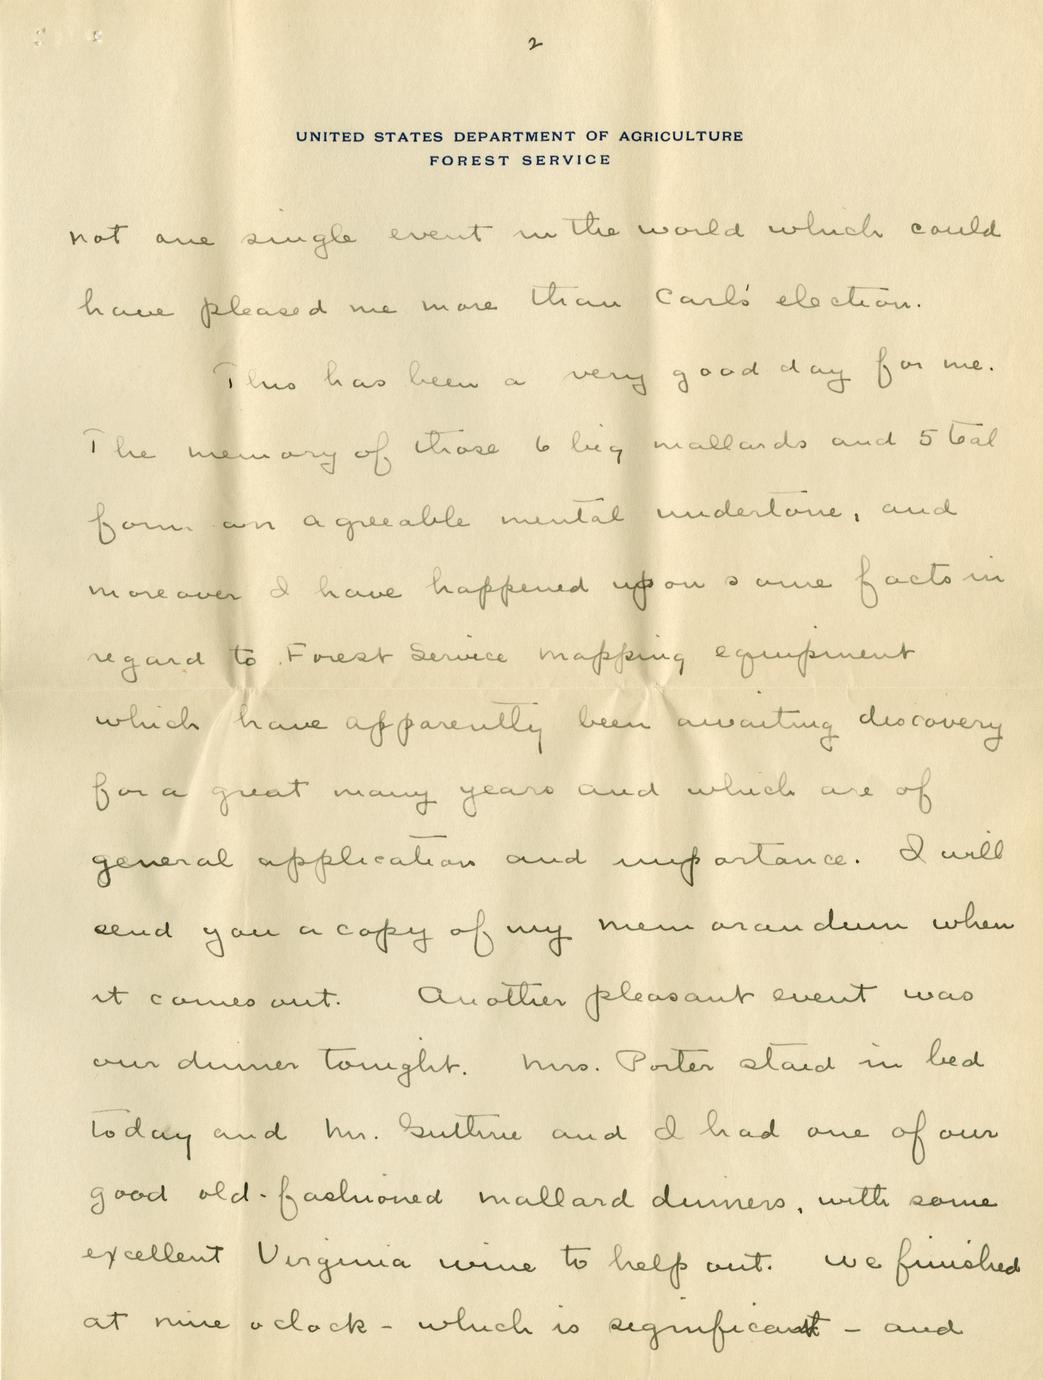 2
UNITED STATES DEPARTMENT OF AGRICULTURE
FOREST SERVICE
not one single event in the world which could
have pleased me more than Carl's election.
This has been a very good day for me.
The memory of those 6 big mallards and 5 teal
form an agreeable mental undertone, and
moreover I have happened upon some facts in
regard to Forest Service mapping equipment
which have apparently been awaiting discovery
for a great many years and which are of
general application and importance. I will
send you a copy of my memorandum when
it comes out. Another pleasant event was
our dinner tonight. Mrs. Porter staid in bed
today and Mr. Guthrie and I had one of our
good old-fashioned mallard dinners, with some
excellent Virginia wine to help out. We finished
at nine oclock - which is significant - and